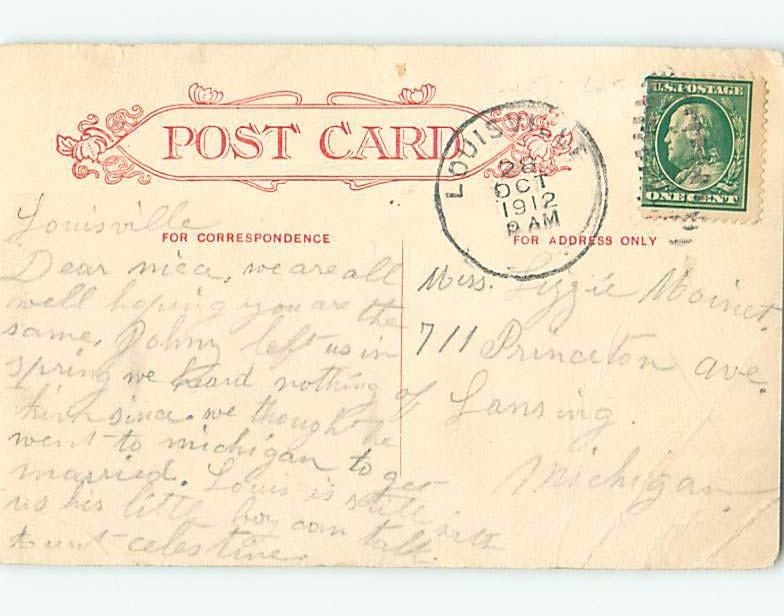 POST CARD
LOUISVILLE
28
OCT
1912
AM
U.S. POSTAGE
ONE CENT
FOR CORRESPONDENCE
FOR ADDRESS ONLY
Louisville
Dear niece, we are all
well hoping you are the
same, Johny left us in
spring we heard nothing of
him since. we thought he
went to michigan to get
married. Louis is still with
us his little boy can talk.
aunt celestine.
Miss. Lizzie Moinet.
711 Princeton ave.
Lansing.
Michigan.